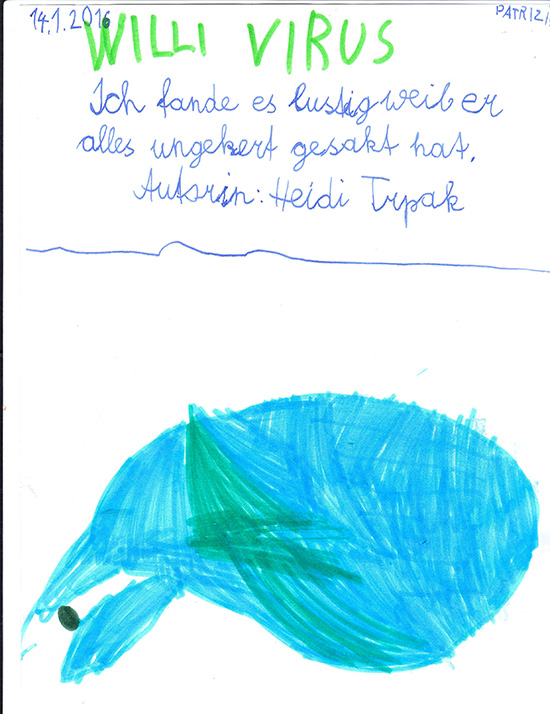 14.1.2016
PATRIZI
WILLI VIRUS
Ich fande es lustig weil er
alles ungekert gesakt hat.
Autorin: Heidi Trpak